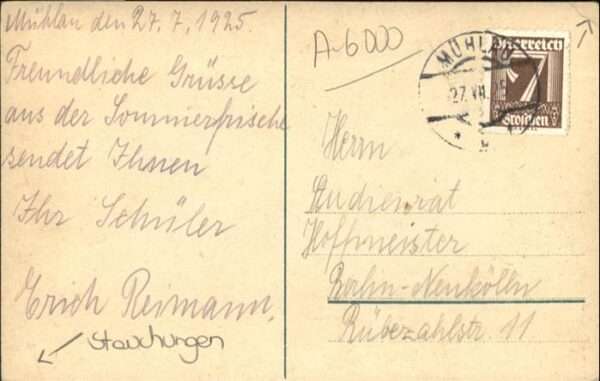 Mühlau den 27.7.1925.
Freundliche Grüsse
aus der Sommerfrische
sendet Ihnen
Ihr Schüler
Erich Reimann.
Stauchungen
A-6000
MÜHLAU
27.VII.
Österreich
7
Groschen
Herrn
Studienrat
Hoffmeister
Berlin-Neukölln
Rübezahlstr. 11